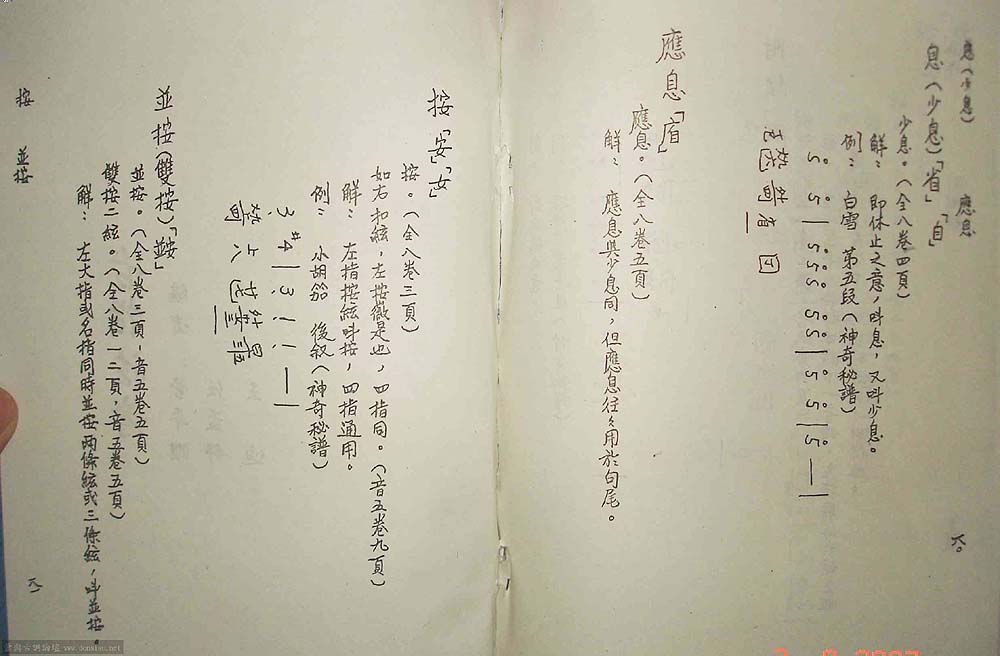 息（少息） 應息
息（少息）「省」「自」
少息。（全八卷四頁）
解： 即休止之意，叫息，又叫少息。
例： 白雪 第五段（神奇秘譜）
5 5 | 5 5 5 5 5 5 | 5 5 | 5 — |
應息「㢈」
應息。（全八卷五頁）
解： 應息與少息同，但應息往々用於句尾。
八〇
按「安」「女」
按。（全八卷三頁）
如右扣絃，左按徽是也，四指同。（音五卷九頁）
解： 左指按絃叫按，四指通用。
例： 小胡笳 後叙（神奇秘譜）
3 #4 | 3 1 1 — |
並按（雙按）
並按。（全八卷三頁－音五卷五頁）
雙按二絃。（全八卷一二頁，音五卷五頁）
解： 左大指或名指同時並按兩條絃或三條絃，叫並按。
按 並按
八一
www.donslau.net